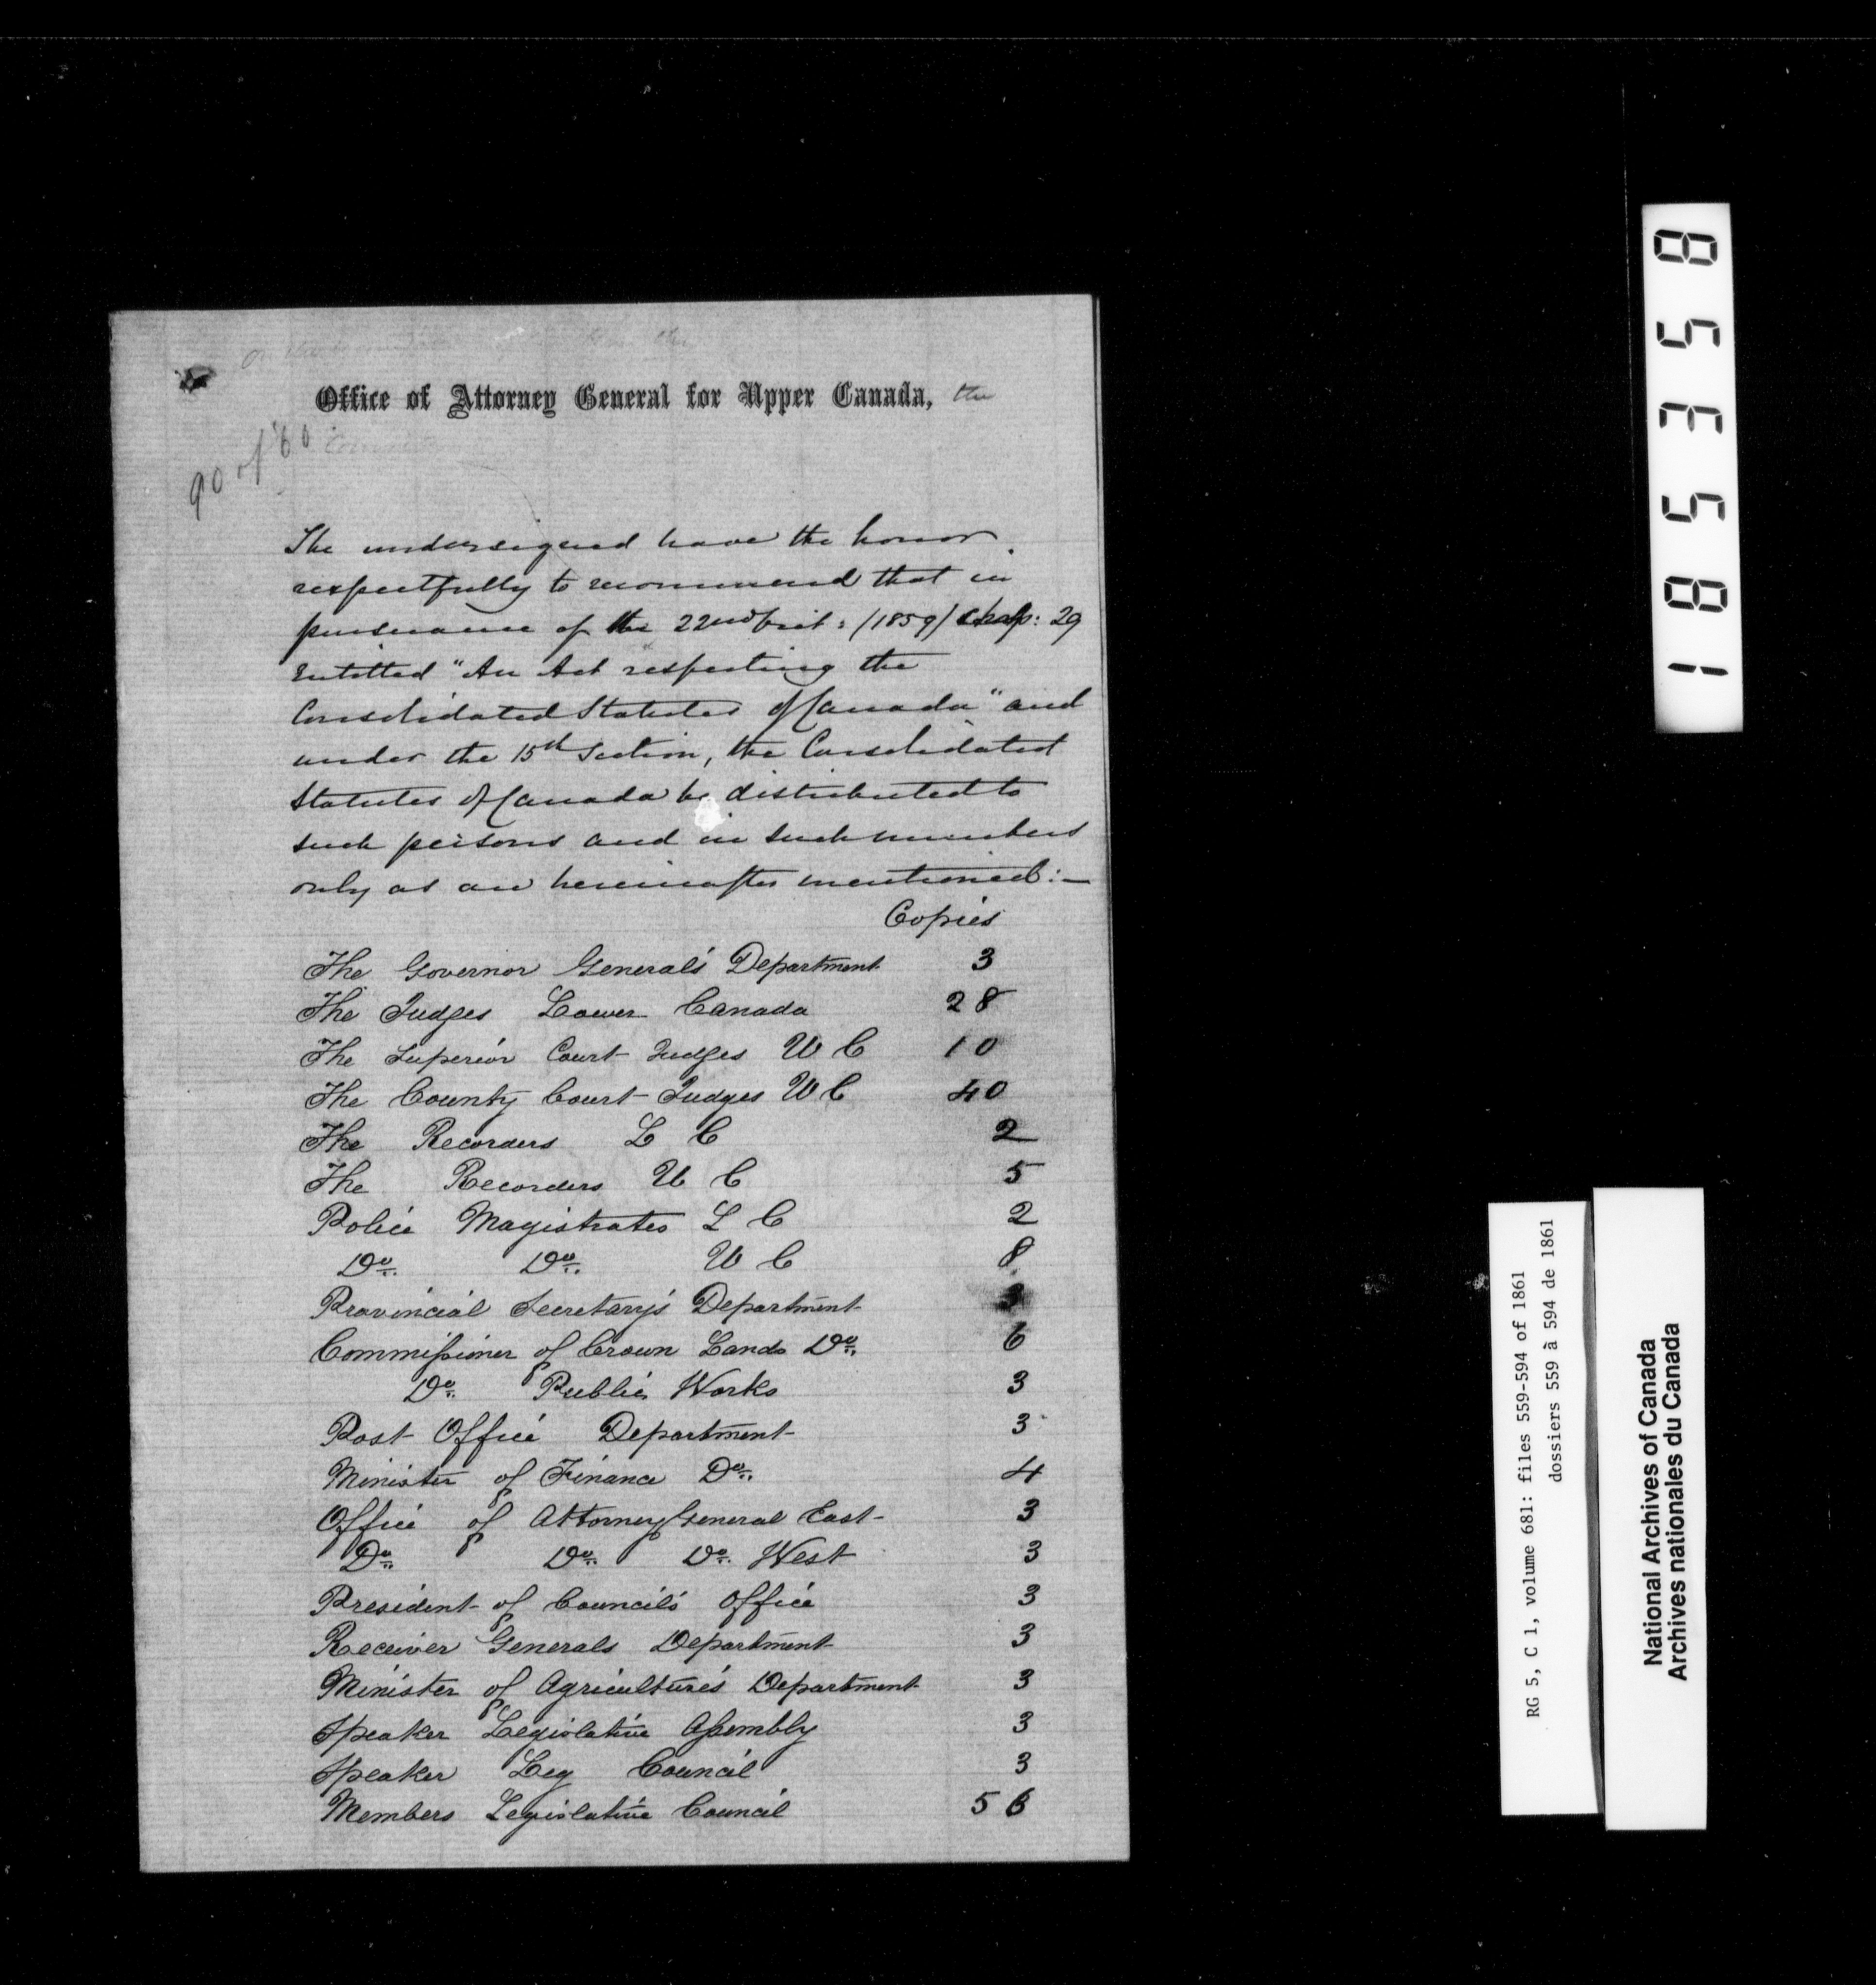 Office of Attorney General for Upper Canada, the
90 of '60
The undersigned have the honor
respectfully to recommend that in
pursuance of the 22nd Vict: (1859) chap: 29
Entitled "An Act respecting the
Consolidated Statutes of Canada" and
under the 15th Section, the Consolidated
Statutes of Canada be distributed to
such persons and in such numbers
only as are hereinafter mentioned:—
Copies
The Governor General's Department 3
The Judges Lower Canada 28
The Superior Court Judges U C 10
The County Court Judges U C 40
The Recorders L C 2
The Recorders U C 5
Police Magistrates L C 2
Do. Do. U C 8
Provincial Secretary's Department 3
Commissioner of Crown Lands Do. 6
Do. Public Works 3
Post Office Department 3
Minister of Finance Do. 4
Office of Attorney General East 3
Do. Do. Do. West 3
President of Council's Office 3
Receiver Generals Department 3
Minister of Agriculture's Department 3
Speaker Legislative Assembly 3
Speaker Leg Council 3
Members Legislative Council 56
185358
RG 5, C 1, volume 681: files 559-594 of 1861
dossiers 559 à 594 de 1861
National Archives of Canada
Archives nationales du Canada